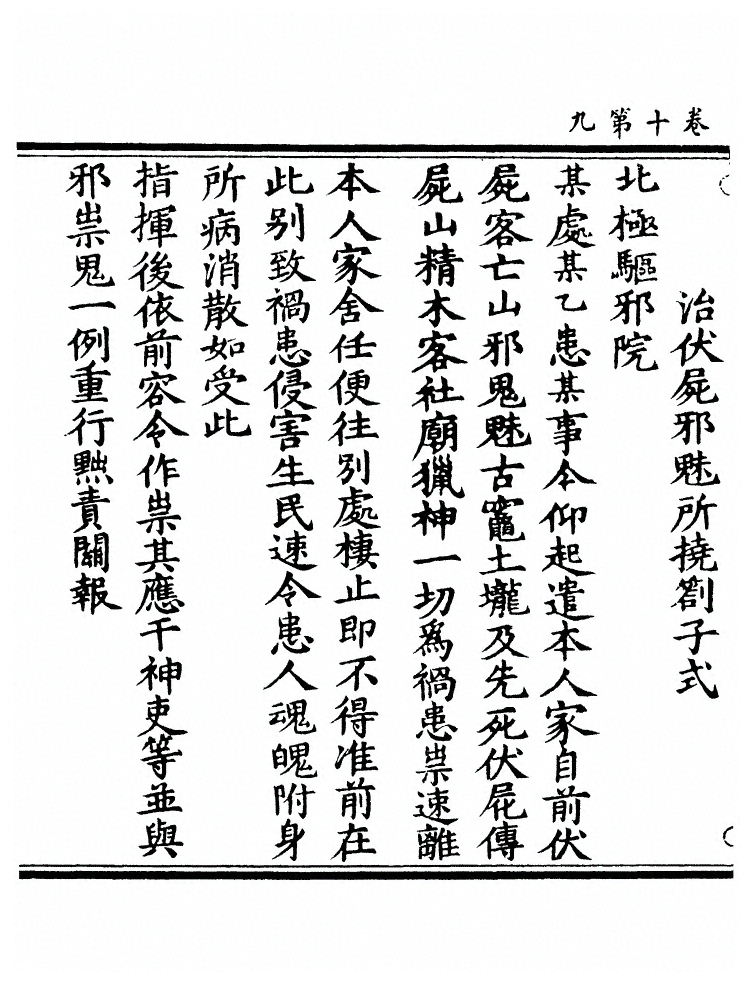 卷十第九
治伏屍邪魅所撓劄子式
北極驅邪院
某處某乙患某事今仰起遣本人家自前伏
屍客亡山邪鬼魅古竈土壠及先死伏屍傳
屍山精木客社廟獵神一切爲禍患祟速離
本人家舍任便往別處棲止即不得准前在
此別致禍患侵害生民速令患人魂魄附身
所病消散如受此
指揮後依前容令作祟其應干神吏等並與
邪祟鬼一例重行黜責關報